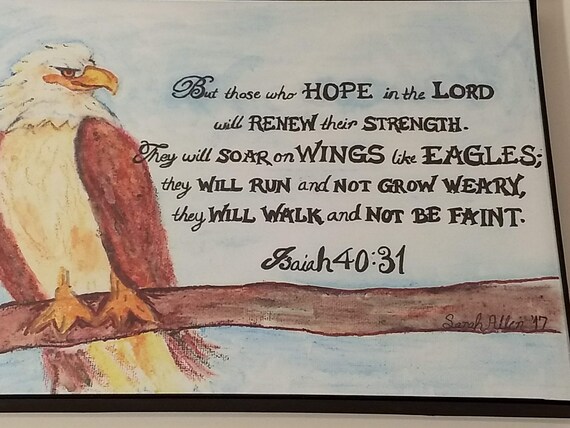 But those who HOPE in the LORD
will RENEW their STRENGTH.
They will SOAR on WINGS like EAGLES;
they WILL RUN and NOT GROW WEARY,
they WILL WALK and NOT BE FAINT.
Isaiah 40:31
Sarah Allen '17